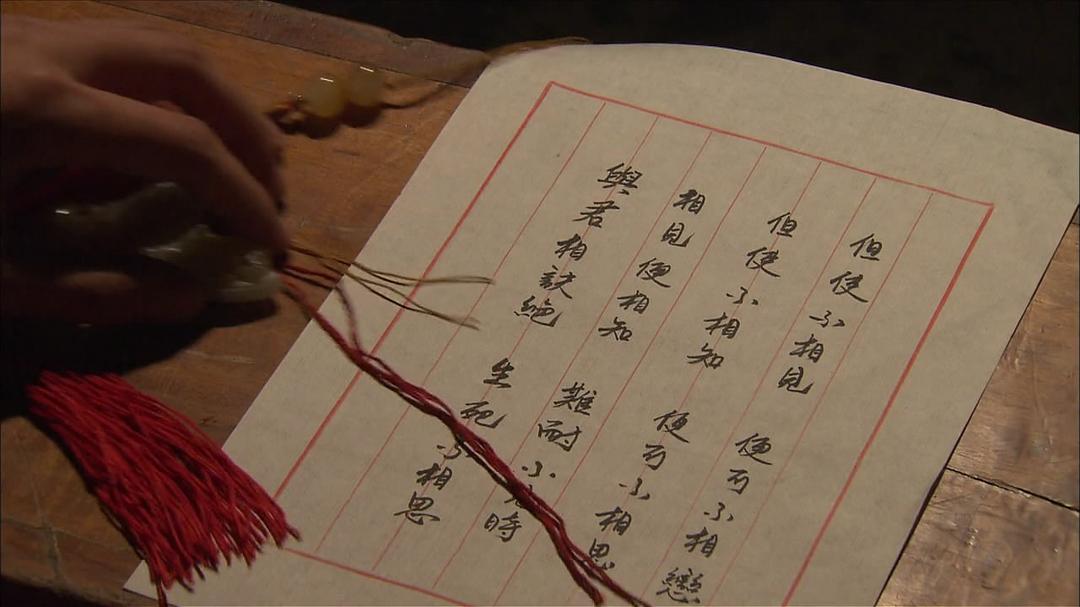 但使不相見 便可不相戀
但使不相知 便可不相思
相見便相知 難耐不時
與君相訣絕 生死不相思